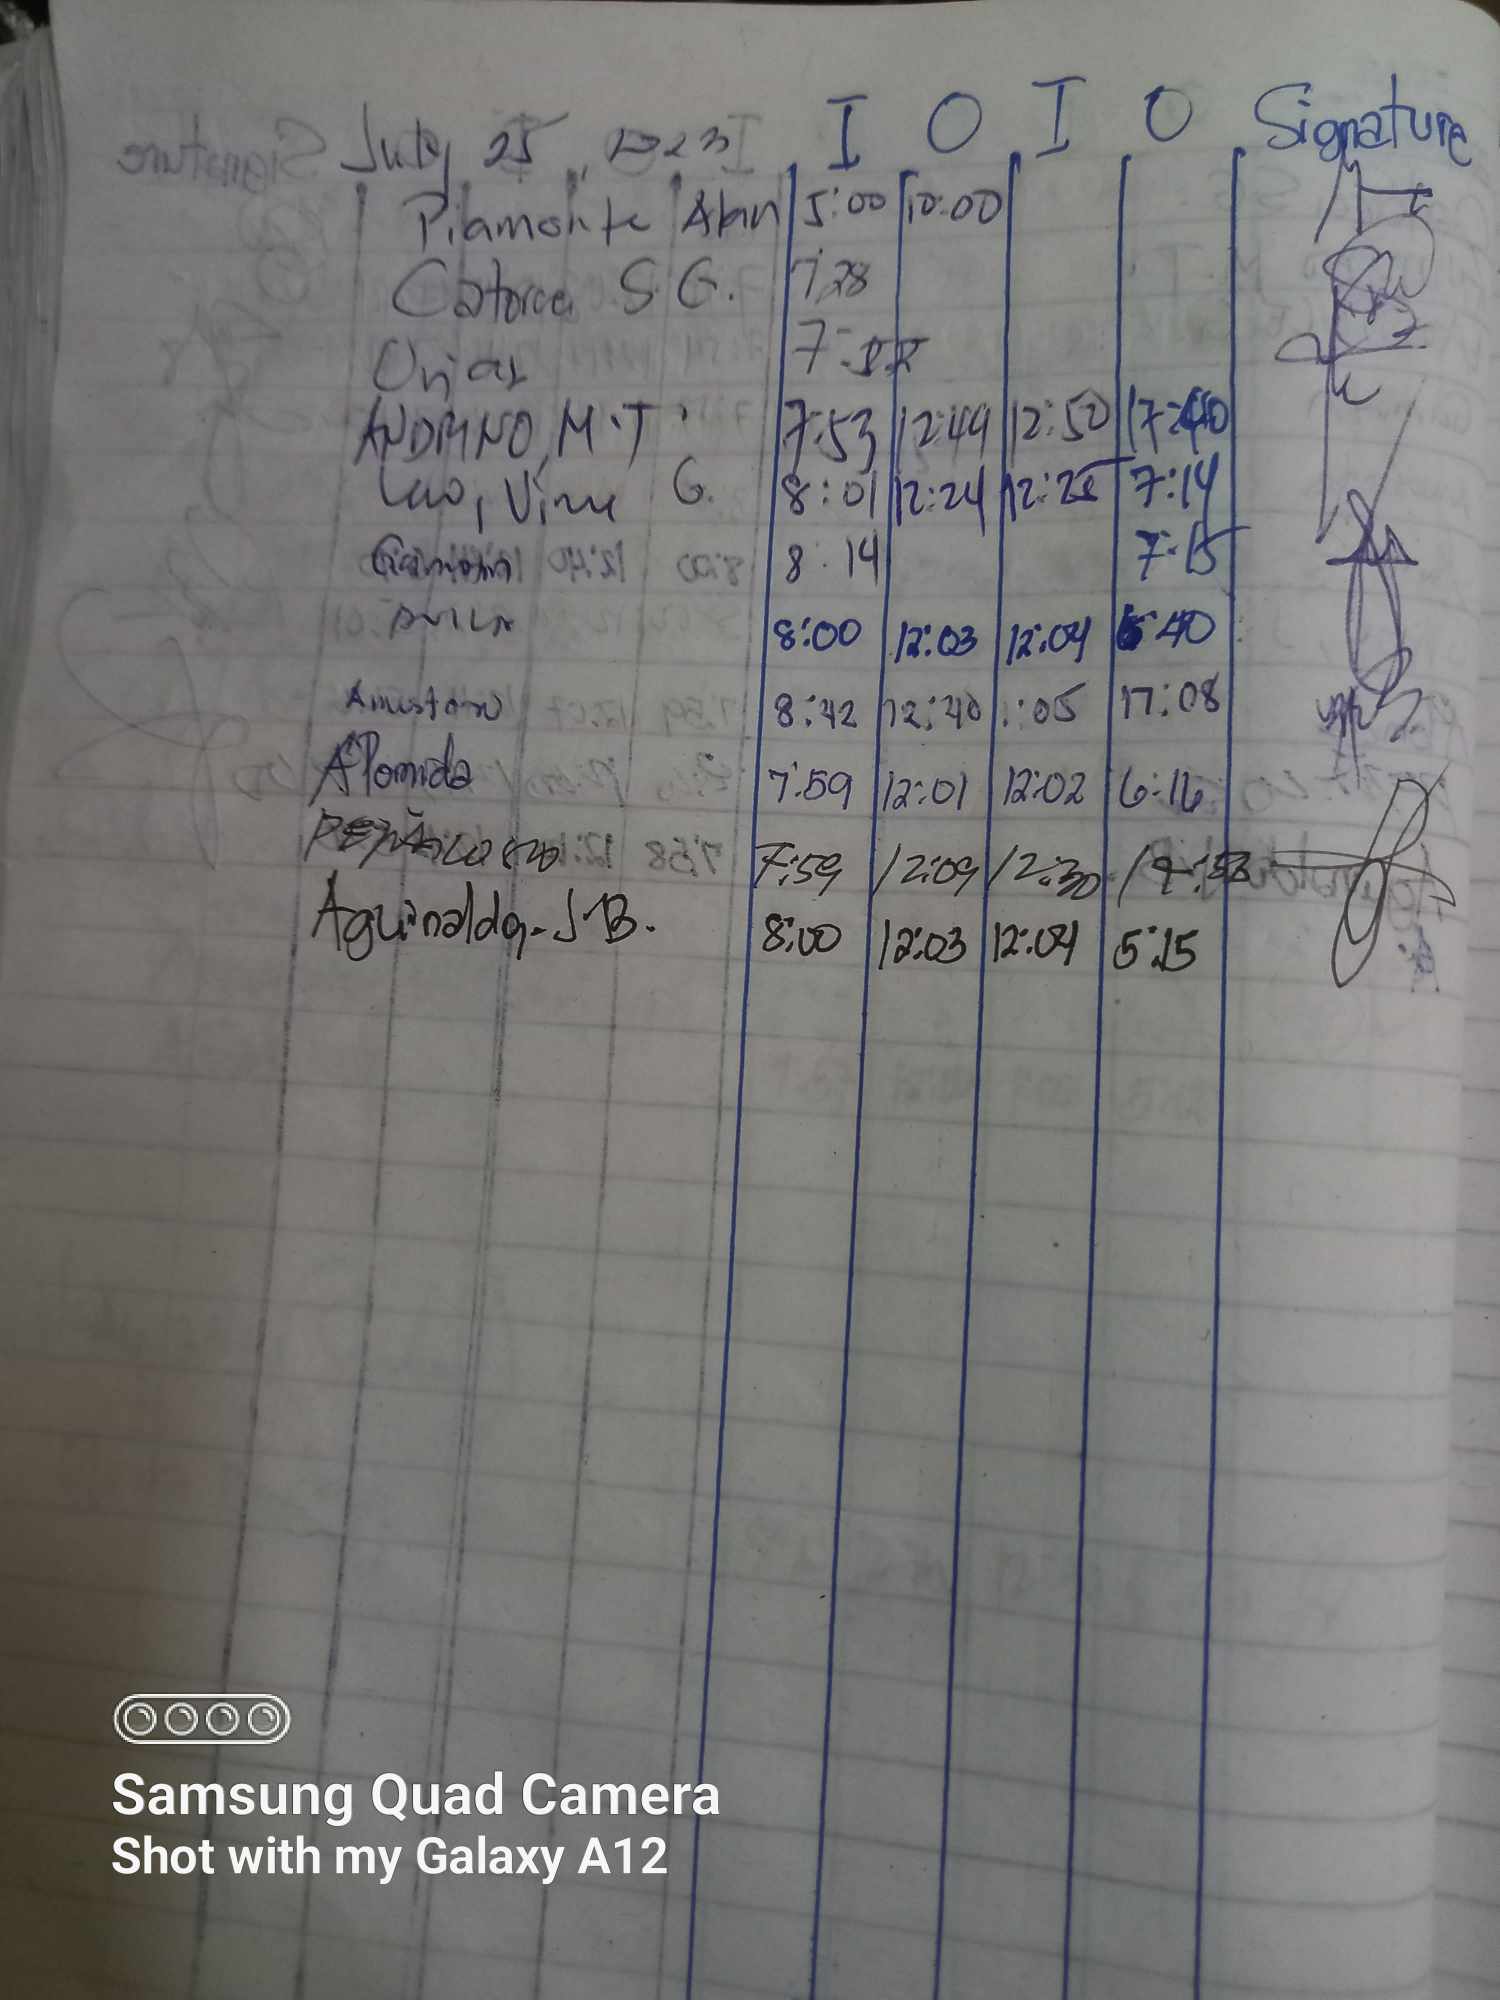 July 25, 2023 I O I O Signature
Piamonte Alan 5:00 10:00
Catorce S.G. 7:28
Orjar 7:55
ANDRINO, M.T. 7:53 12:49 12:50 17:40
Lao, Vine G. 8:01 12:24 12:25 7:14
8:14 7:15
8:00 12:03 12:04 5:40
8:42 12:40 1:05 17:08
Alomida 7:59 12:01 12:02 6:16
7:59 12:09 12:30
Aguinaldo, J B. 8:00 12:03 12:04 5:15
Samsung Quad Camera
Shot with my Galaxy A12